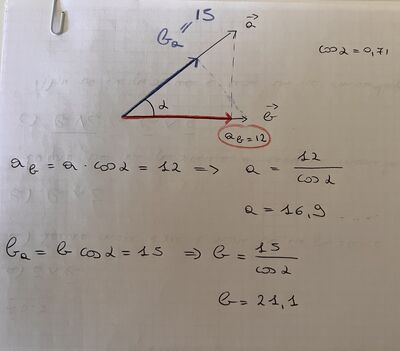 b_a = 15
a⃗
cos α = 0,71
α
b⃗
a_b = 12
a_b = a · cos α = 12 => a = 12 / cos α
a = 16,9 ....
b_a = b cos α = 15 => b = 15 / cos α
b = 21,1